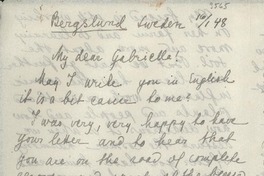 3565
Bergslund Sweden 16/1 48
My dear Gabriella!
May I write you in English
it is a bit
I was very, very happy to have
your letter and to hear that
you are on the road of complete